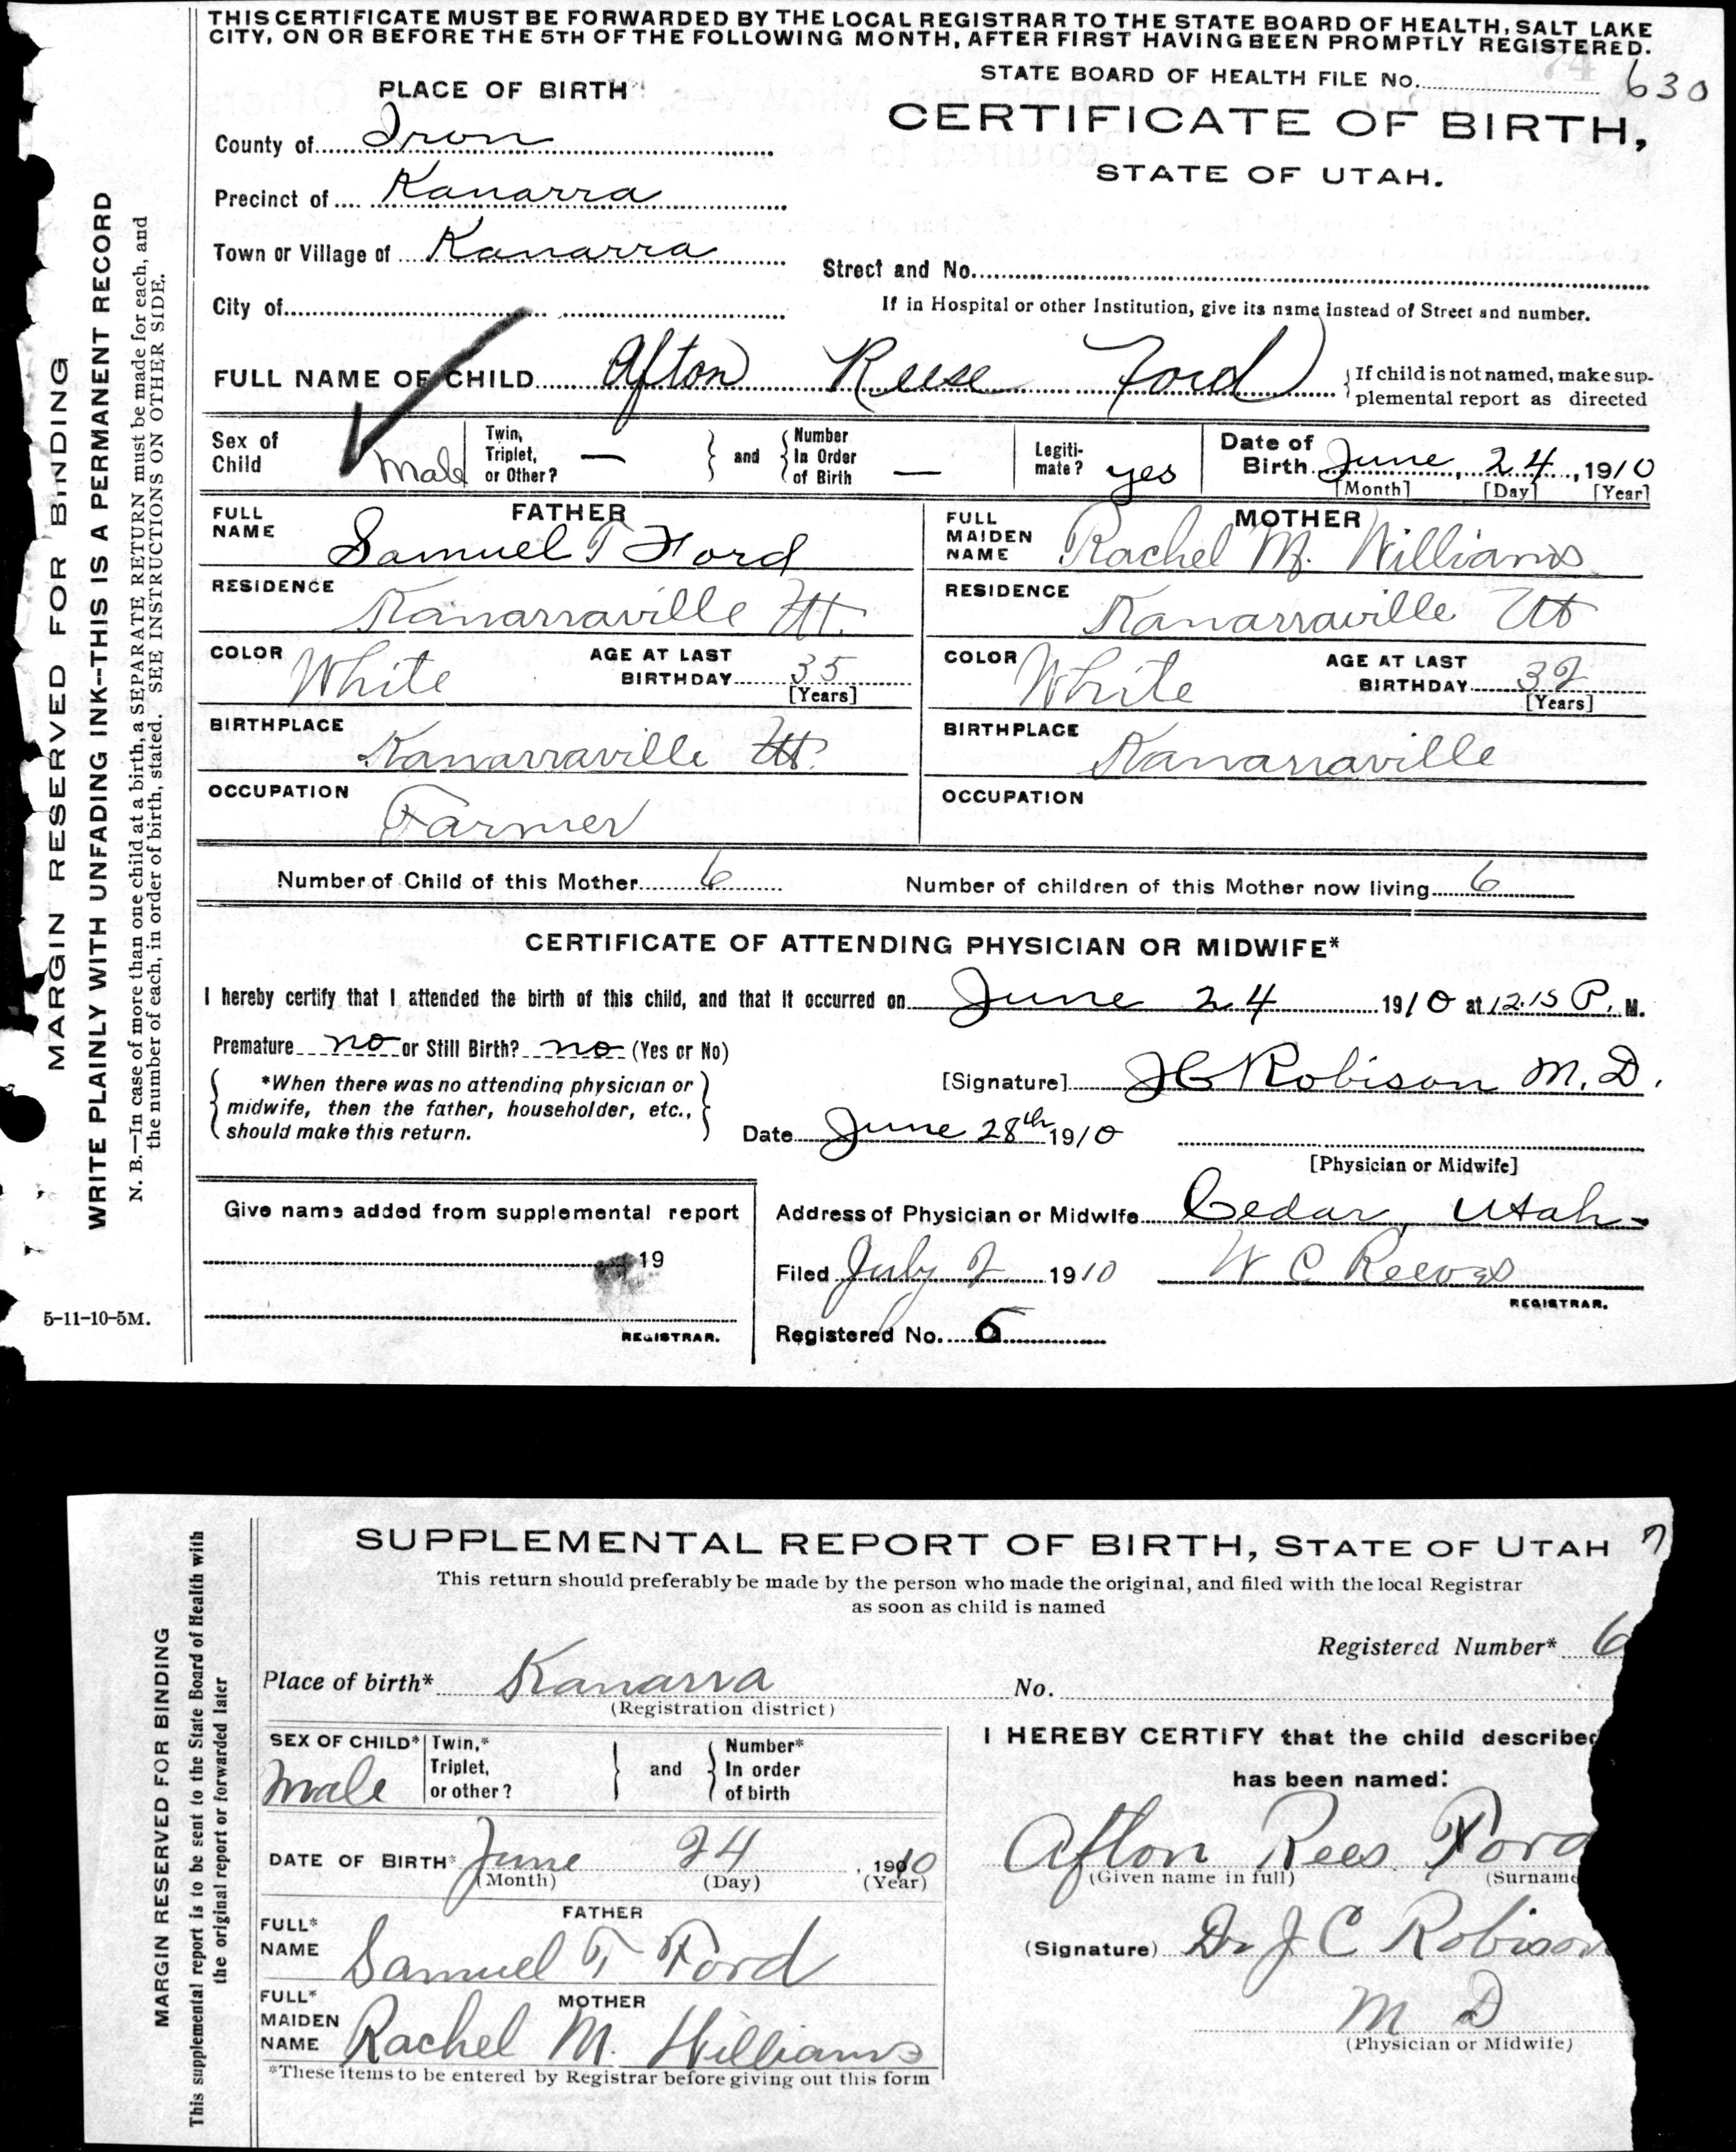 THIS CERTIFICATE MUST BE FORWARDED BY THE LOCAL REGISTRAR TO THE STATE BOARD OF HEALTH, SALT LAKE
CITY, ON OR BEFORE THE 5TH OF THE FOLLOWING MONTH, AFTER FIRST HAVING BEEN PROMPTLY REGISTERED.
STATE BOARD OF HEALTH FILE No. 630
PLACE OF BIRTH
CERTIFICATE OF BIRTH,
STATE OF UTAH.
County of Iron
Precinct of Kanarra
Town or Village of Kanarra
Street and No.
City of
If in Hospital or other Institution, give its name instead of Street and number.
FULL NAME OF CHILD Afton Reese Ford
If child is not named, make sup-
plemental report as directed
Sex of Child Male
Twin, Triplet, or Other? —
and
Number In Order of Birth —
Legiti-
mate? yes
Date of Birth June, 24, 1910
[Month] [Day] [Year]
FATHER
FULL NAME Samuel T Ford
RESIDENCE Kanarraville Ut.
COLOR White
AGE AT LAST BIRTHDAY 35
[Years]
BIRTHPLACE Kanarraville Ut.
OCCUPATION Farmer
MOTHER
FULL MAIDEN NAME Rachel M. Williams
RESIDENCE Kanarraville Ut
COLOR White
AGE AT LAST BIRTHDAY 32
[Years]
BIRTHPLACE Kanarraville
OCCUPATION
Number of Child of this Mother 6
Number of children of this Mother now living 6
CERTIFICATE OF ATTENDING PHYSICIAN OR MIDWIFE*
I hereby certify that I attended the birth of this child, and that it occurred on June 24 1910 at 12.15 P. M.
Premature no or Still Birth? no (Yes or No)
*When there was no attending physician or
midwife, then the father, householder, etc.,
should make this return.
[Signature] J C Robison M.D.
Date June 28th 1910
[Physician or Midwife]
Give name added from supplemental report
19
REGISTRAR.
Address of Physician or Midwife Cedar, Utah-
Filed July 2 1910 W C Reeves
REGISTRAR.
Registered No. 6
MARGIN RESERVED FOR BINDING
WRITE PLAINLY WITH UNFADING INK--THIS IS A PERMANENT RECORD
N. B.—In case of more than one child at a birth, a SEPARATE RETURN must be made for each, and
the number of each, in order of birth, stated. SEE INSTRUCTIONS ON OTHER SIDE.
5-11-10-5M.
SUPPLEMENTAL REPORT OF BIRTH, STATE OF UTAH
This return should preferably be made by the person who made the original, and filed with the local Registrar
as soon as child is named
Registered Number* 6
Place of birth* Kanarra No.
(Registration district)
SEX OF CHILD* Male
Twin,* Triplet, or other?
and
Number* In order of birth
DATE OF BIRTH* June 24, 1910
(Month) (Day) (Year)
FATHER
FULL* NAME Samuel T Ford
MOTHER
FULL* MAIDEN NAME Rachel M. Williams
*These items to be entered by Registrar before giving out this form
I HEREBY CERTIFY that the child described
has been named:
Afton Rees Ford
(Given name in full) (Surname
(Signature) Dr J C Robison
M D
(Physician or Midwife)
MARGIN RESERVED FOR BINDING
This supplemental report is to be sent to the State Board of Health with
the original report or forwarded later